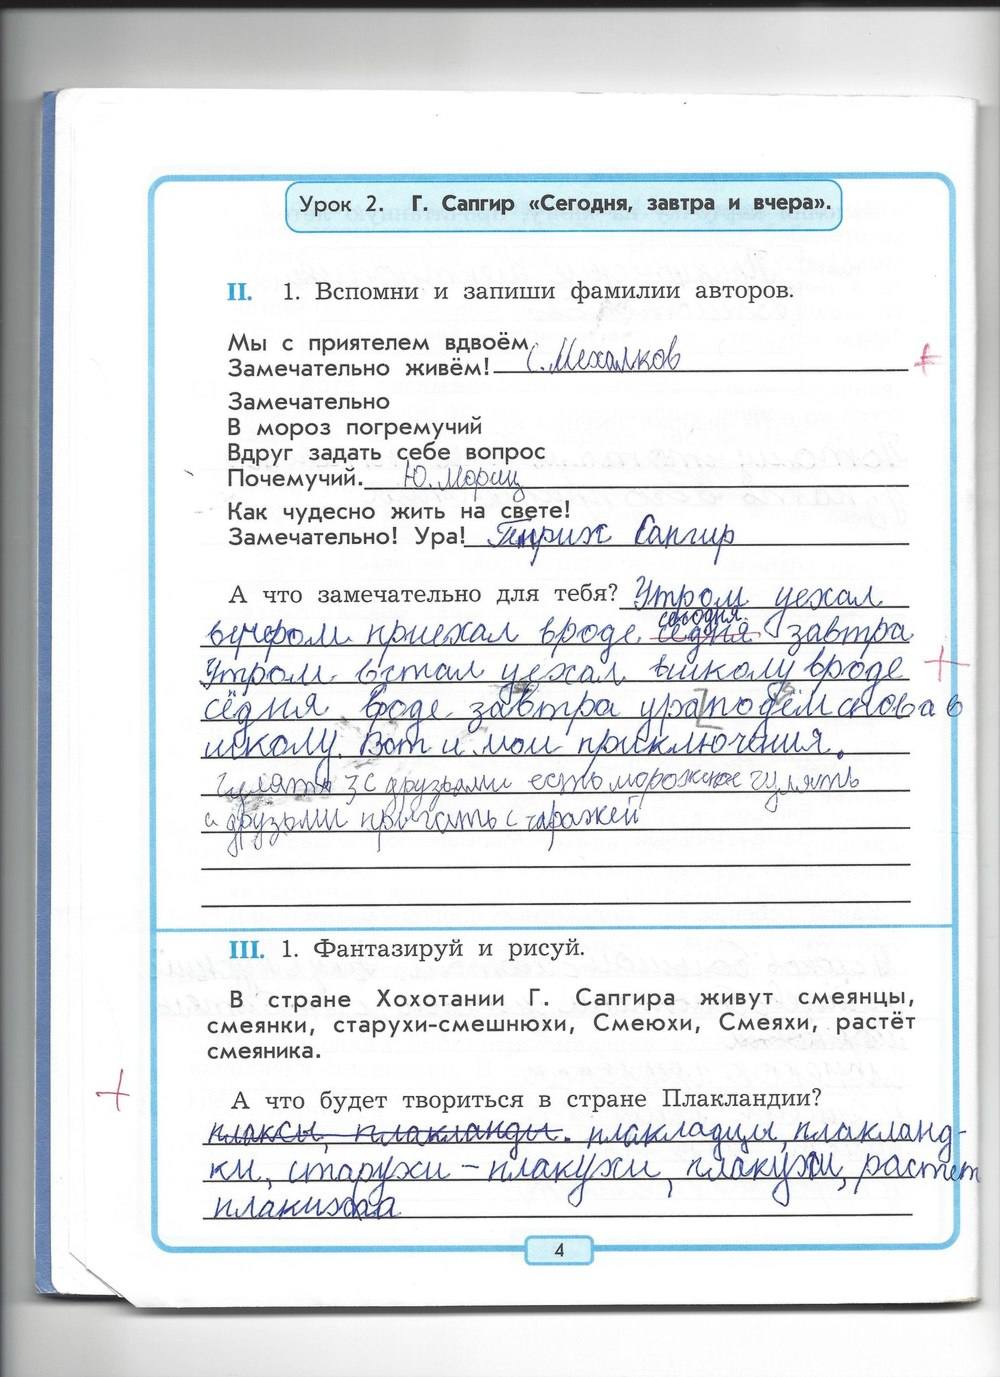 Урок 2. Г. Сапгир «Сегодня, завтра и вчера».
II. 1. Вспомни и запиши фамилии авторов.
Мы с приятелем вдвоём
Замечательно живём! С. Мехалков +
Замечательно
В мороз погремучий
Вдруг задать себе вопрос
Почемучий. Ю. Мориц
Как чудесно жить на свете!
Замечательно! Ура! Генрих Сапгир
А что замечательно для тебя? Утром уехал
сегодня
вечером приехал вроде сёдня завтра
Утром встал уехал вшколу вроде +
сёдня вроде завтра ура подём снова в
школу. Вот и мои приключения.
гулять с друзьями есть мороженое гулять
с друзьями прыгать с гаражей
III. 1. Фантазируй и рисуй.
В стране Хохотании Г. Сапгира живут смеянцы,
смеянки, старухи-смешнюхи, Смеюхи, Смеяхи, растёт
смеяника.
+
А что будет твориться в стране Плакландии?
плаксы, плакланды. плакладцы, плакланд-
ки, старухи - плакухи, плакухи, растет
4